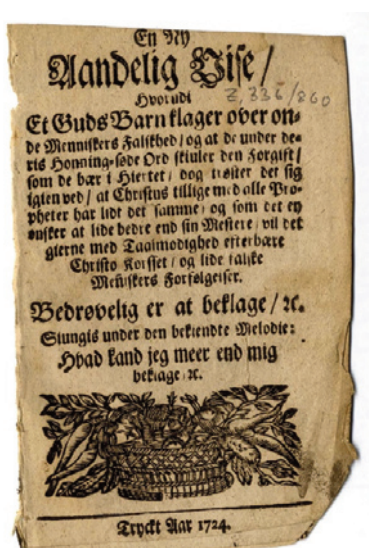 En Ny
Aandelig Vise/
Hvorudi
Z, 336/860
Et Guds Barn klager over on-
de Menniskers Falskhed/ og at de under de-
ris Honning-søde Ord skiuler den Forgift/
som de bær i Hiertet/ dog trøster det sig
igien ved/ at Christus tillige med alle Pro-
pheter har lidt det samme/ og som det ey
ønsker at lide bedre end sin Mestere/ vil det
gierne med Taalmodighed efterbære
Christo Korsset/ og lide falske
Menniskers Forfølgelser.
Bedrøvelig er at beklage/ ꝛc.
Siungis under den bekiendte Melodie:
Hvad kand jeg meer end mig
beklage/ ꝛc.
Tryckt Aar 1724.